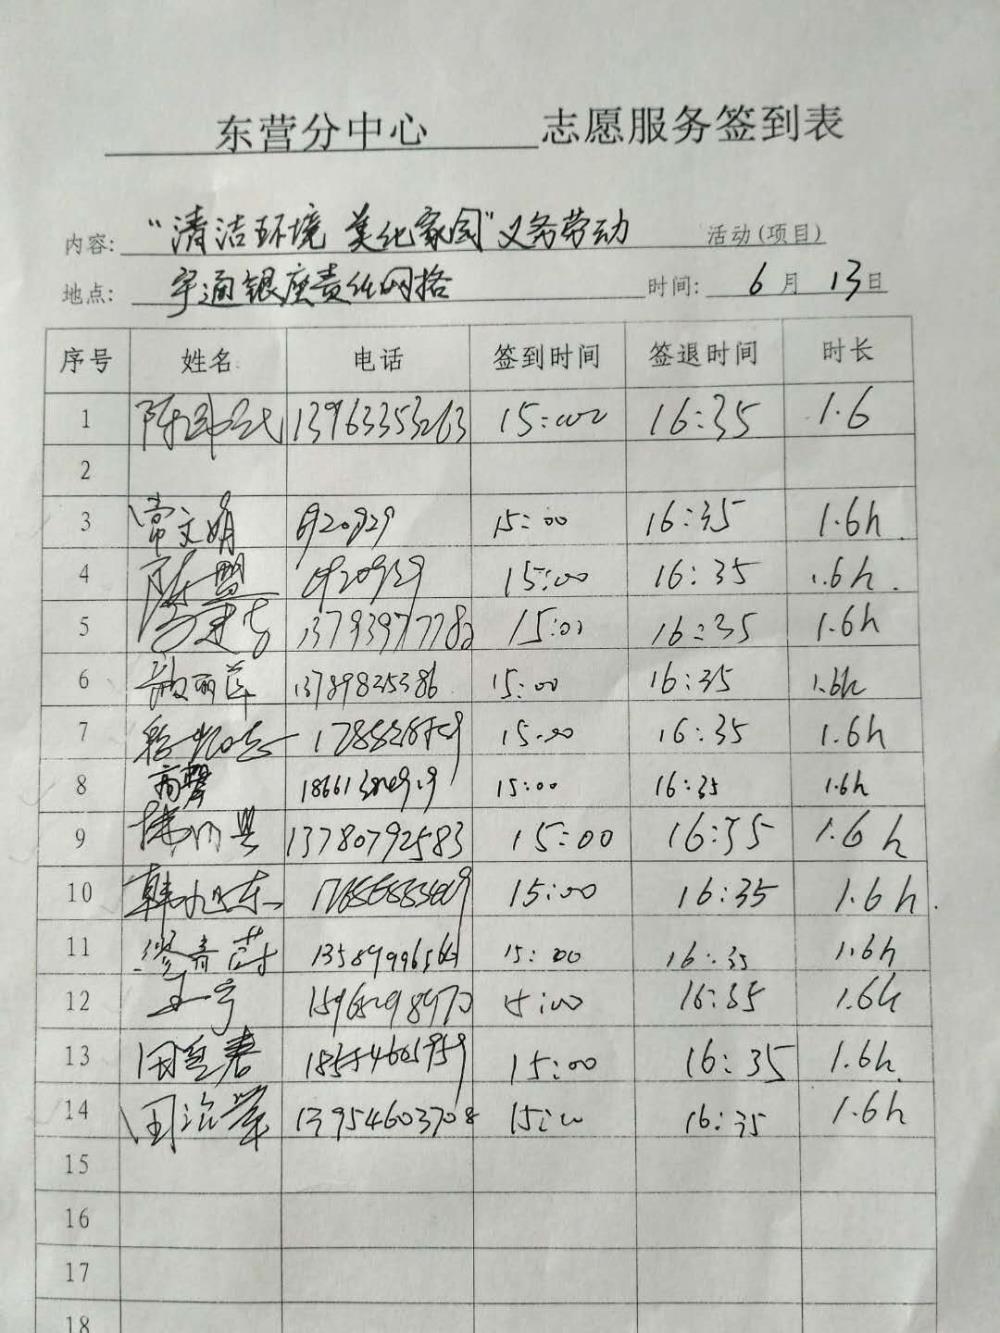 东营分中心 志愿服务签到表
内容: "清洁环境 美化家园"义务劳动 活动(项目)
地点: 宇通银座责任网格 时间: 6月13日
序号 姓名 电话 签到时间 签退时间 时长
1 13963353263 15:00 16:35 1.6
2
3 常文娟 15:00 16:35 1.6h
4 陈盟 15:00 16:35 1.6h.
5 15:00 16:35 1.6h
6 13789825386 15:00 16:35 1.6h
7 15:00 16:35 1.6h
8 高翠 15:00 16:35 1.6h
9 13780792583 15:00 16:35 1.6h
10 韩旭东 15:00 16:35 1.6h.
11 15:00 16:35 1.6h
12 王宁 15:00 16:35 1.6h
13 15:00 16:35 1.6h.
14 13954603708 15:00 16:35 1.6h
15
16
17
18